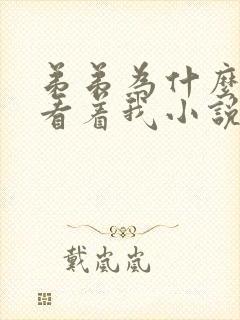 弟弟為什麼
看着我小說
戴嵐嵐